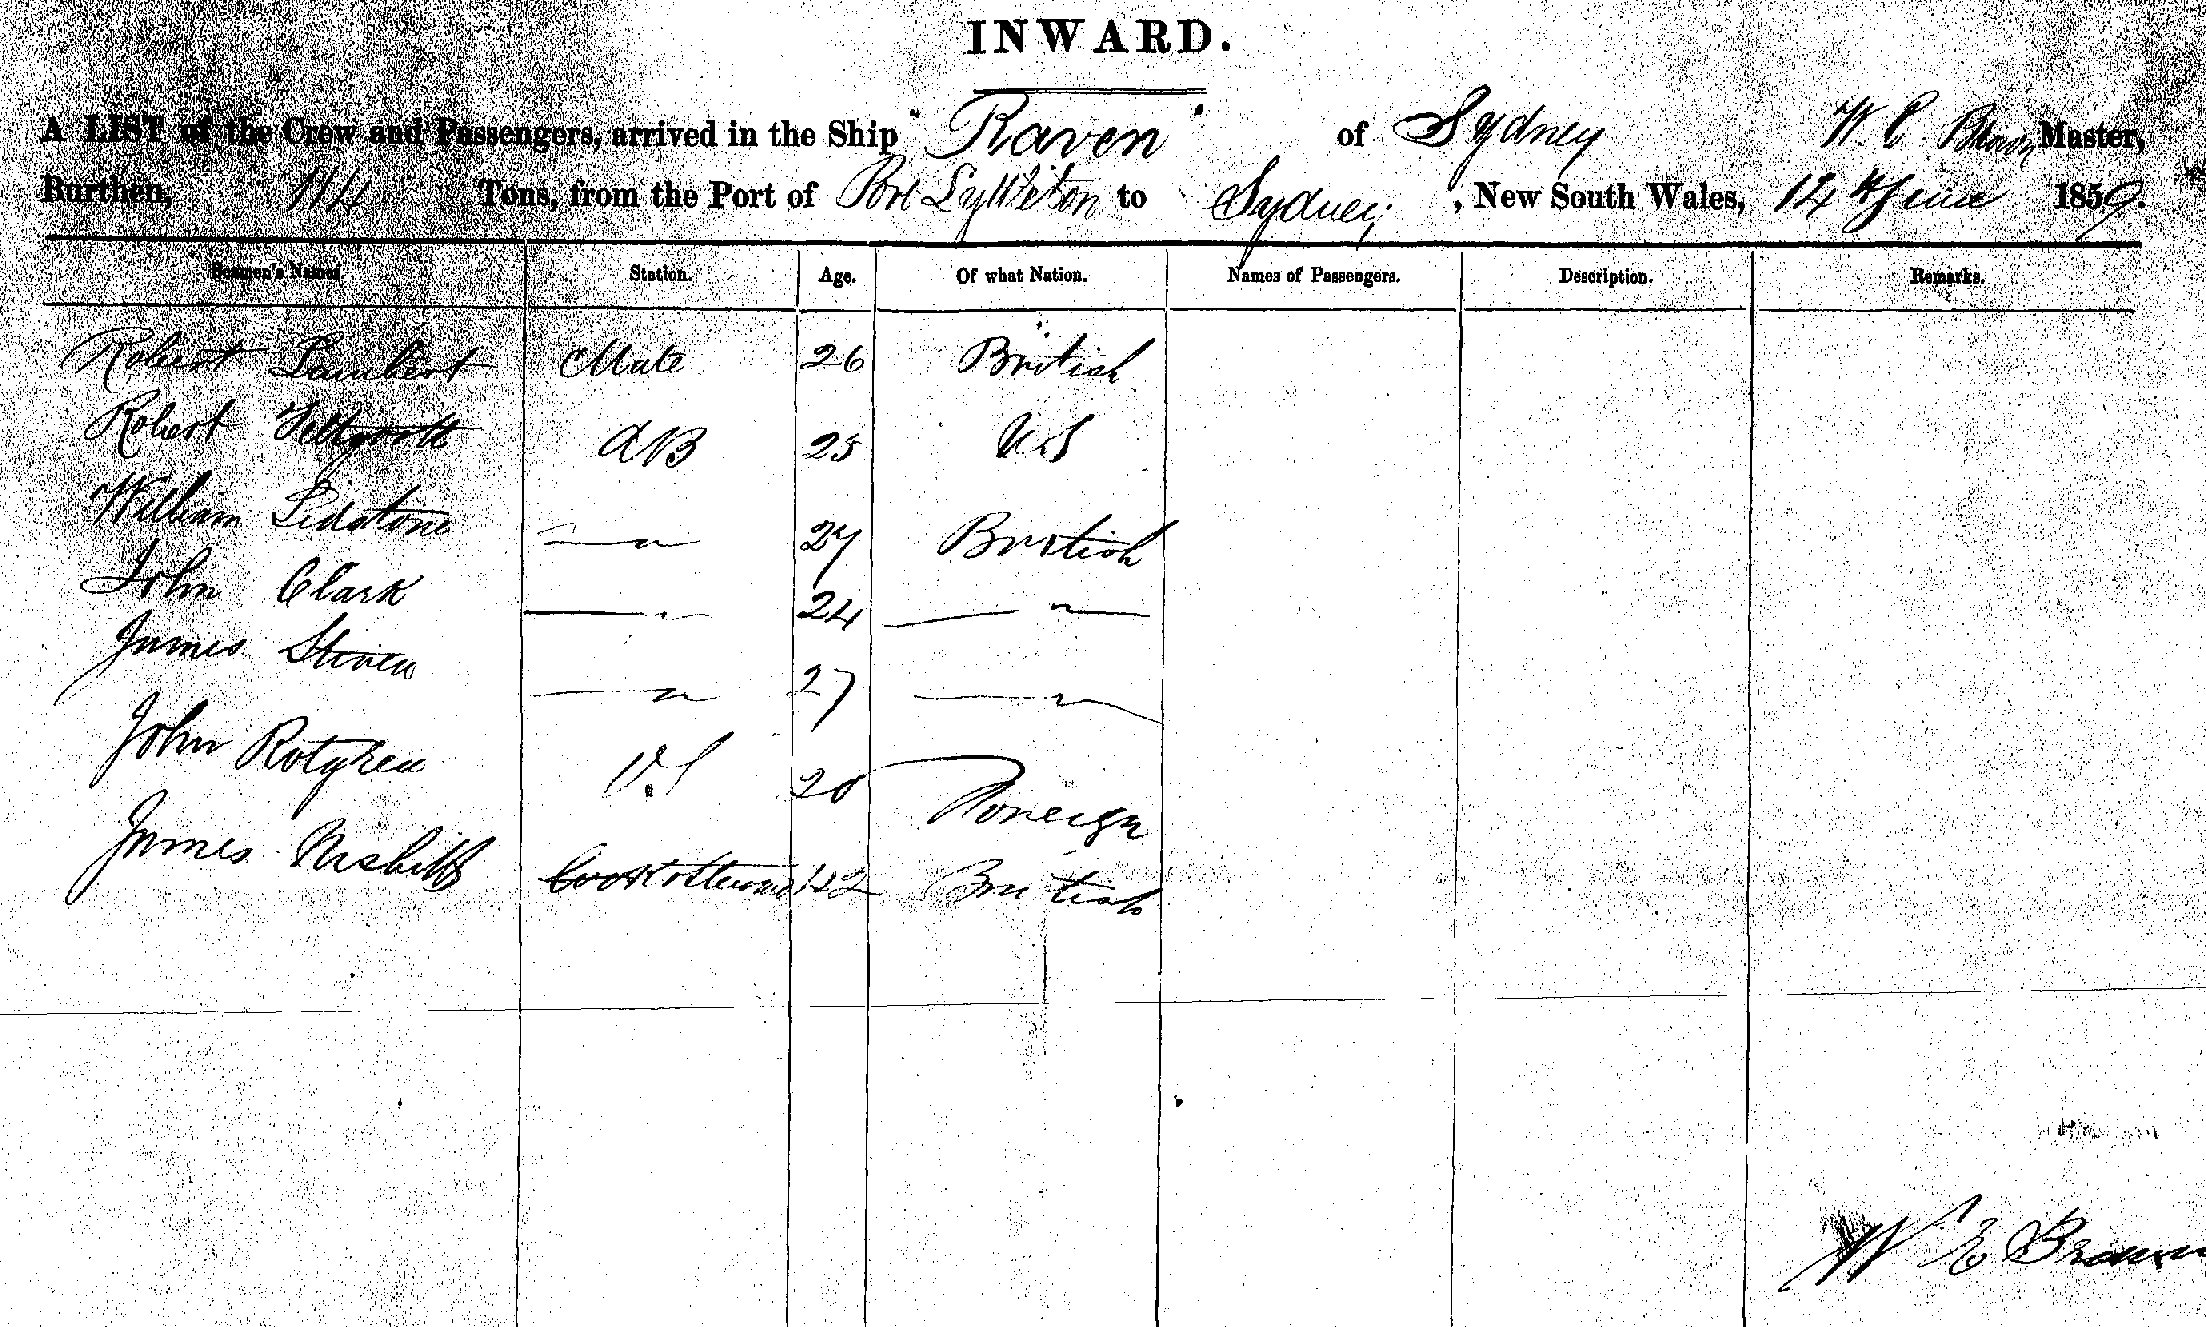 INWARD.
A LIST of the Crew and Passengers, arrived in the Ship "Raven" of Sydney W. E. Brown Master,
Burthen, 114 Tons, from the Port of Port Lyttleton to Sydney, New South Wales, 14th June 1859.
Seamen's Names. Station. Age. Of what Nation. Names of Passengers. Description. Remarks.
Robert Lambert Mate 26 British
Robert AB 25 U.S
William Lidstone — " — 27 British
John Clark — " — 24 — " —
James Stiven — " — 27 — " —
John O.S 20 Foreign
James Nisbitt Cook & Steward 42 British
W E Brown